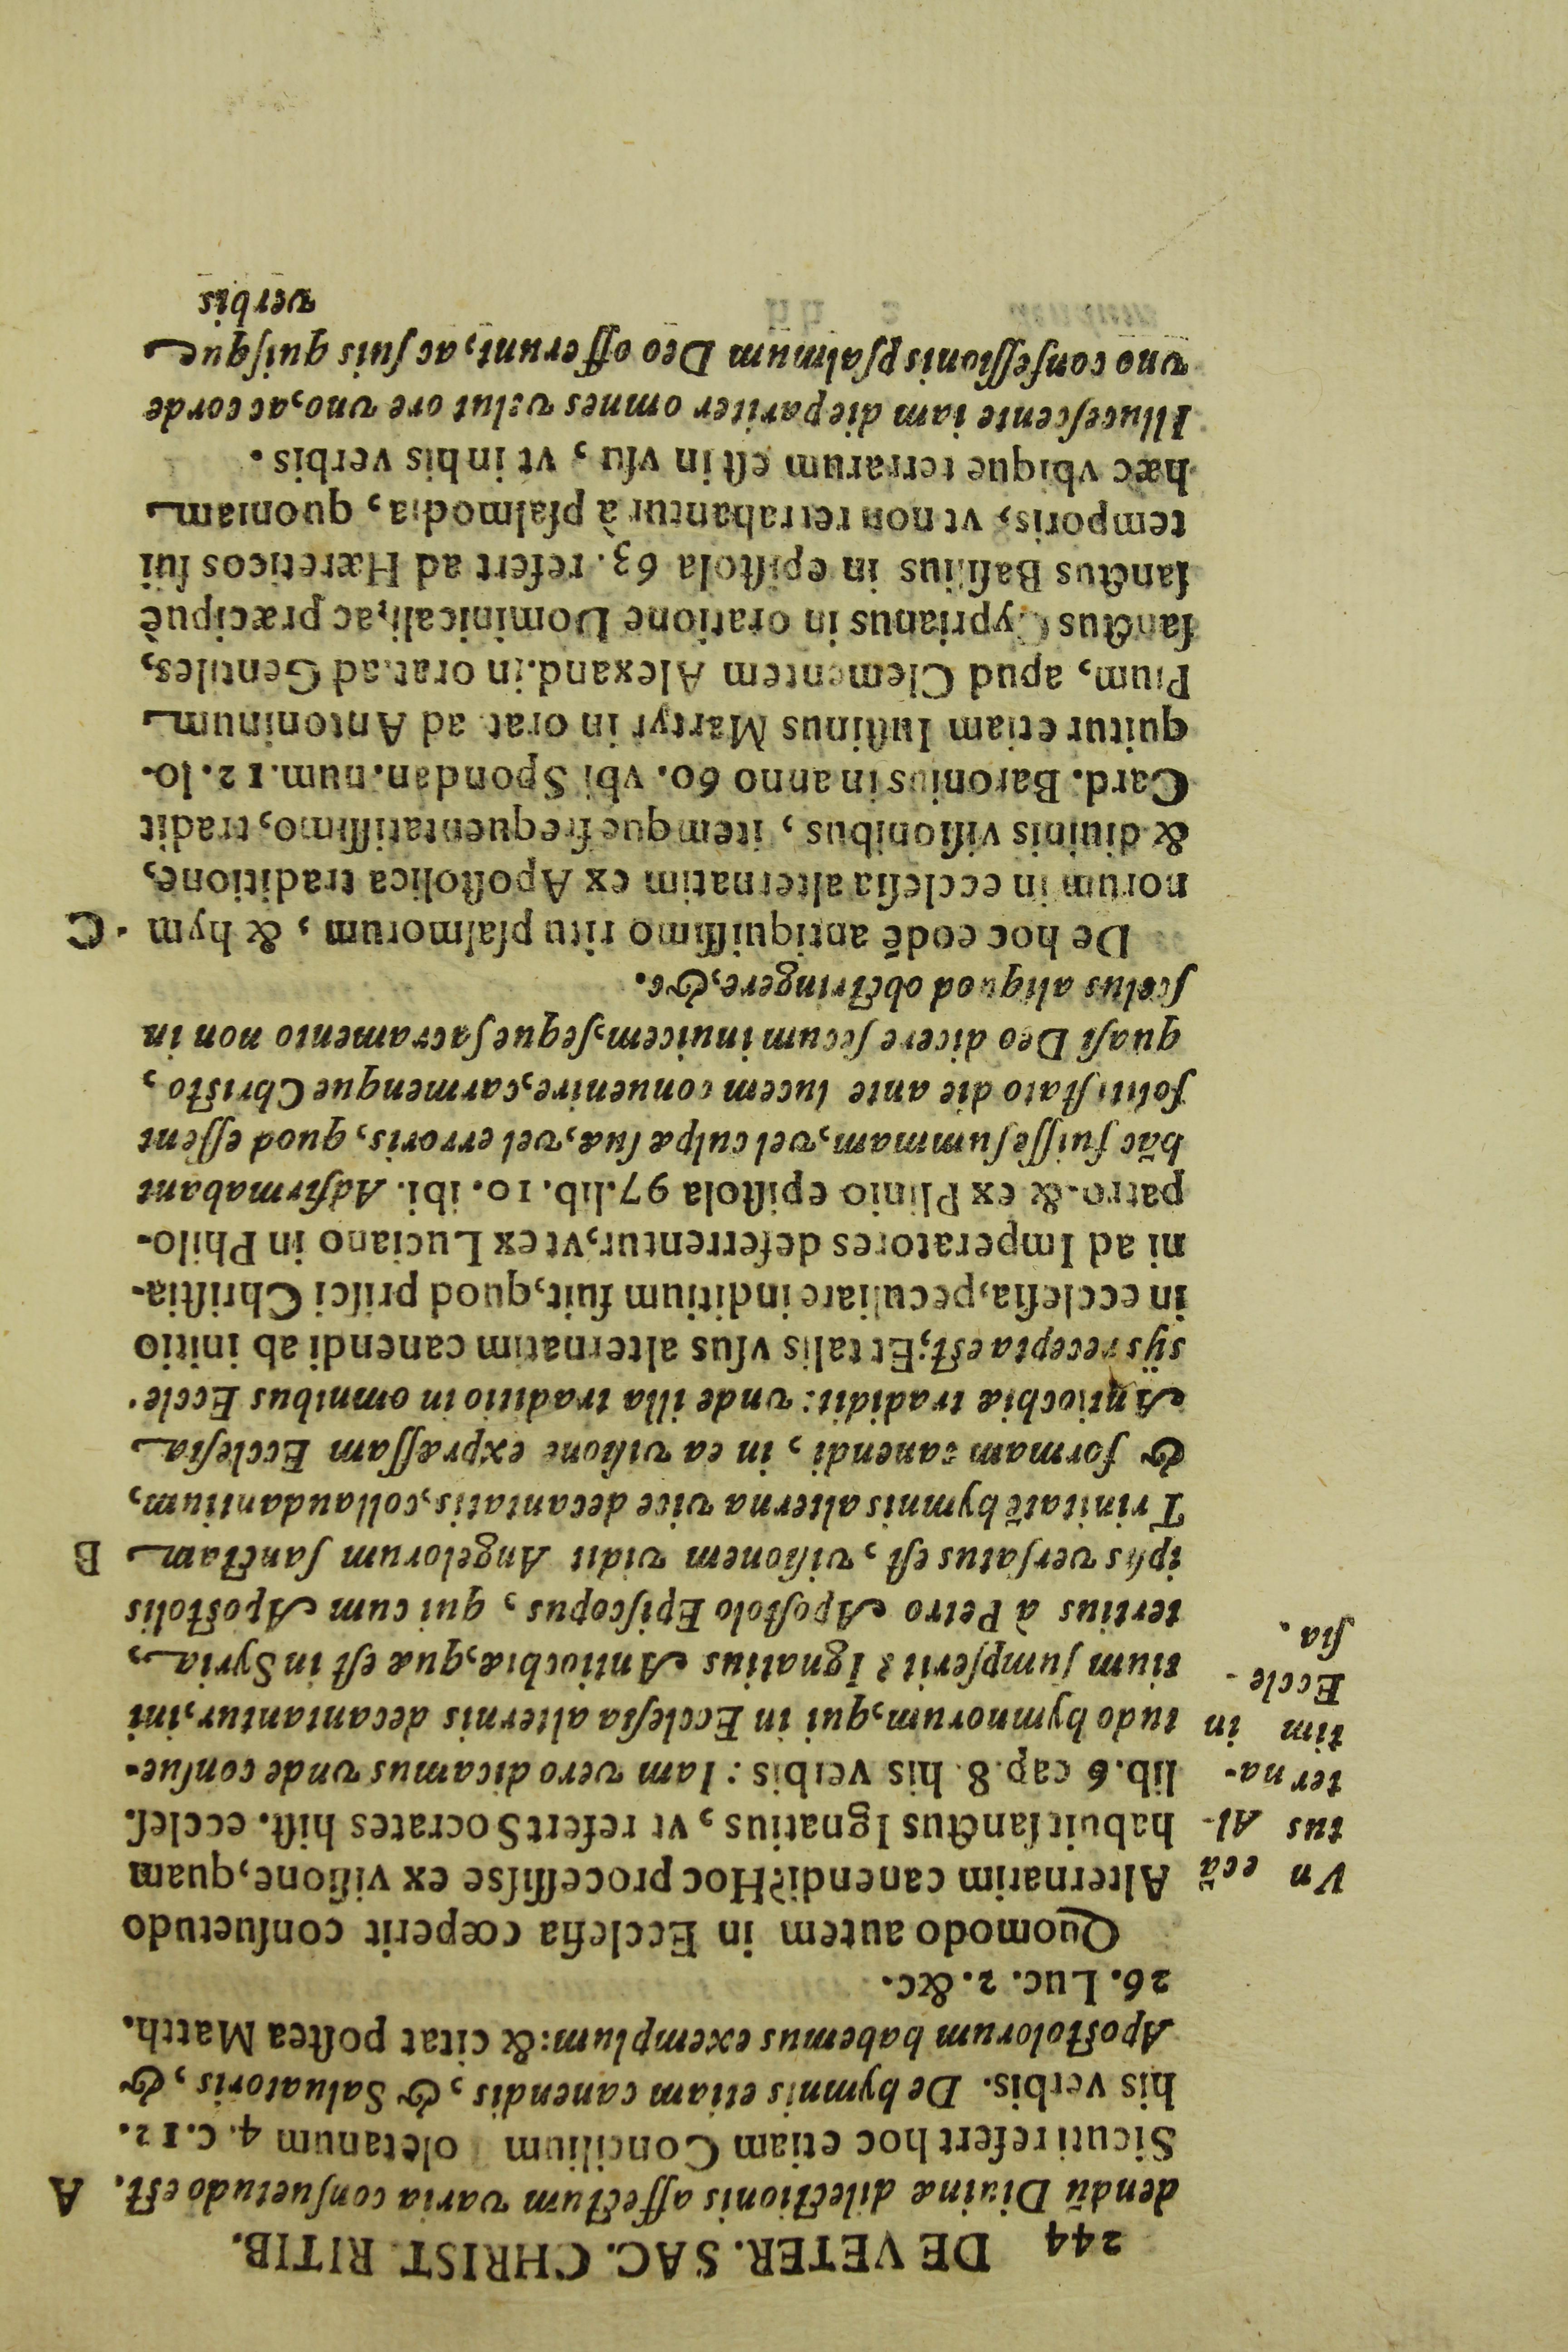 244 DE VETER. SAC. CHRIST. RITIB.
dendũ Diuinæ dilectionis affectum varia conſuetudo eſt. A
Sicuti refert hoc etiam Concilium oletanum 4. c. 12.
his verbis. De hymnis etiam canendis, & Saluatoris, &
Apoſtolorum habemus exemplum: & citat poſtea Matth.
26. Luc. 2. &c.
Quomodo autem in Eccleſia cœperit conſuetudo
Alternatim canendi? Hoc proceſſiſse ex viſione, quam
habuit ſanctus Ignatius, vt refert Socrates hiſt. eccleſ.
lib. 6 cap. 8. his verbis: Iam vero dicamus vnde conſue-
tudo hymnorum, qui in Eccleſia alternis decantantur, ini
tium ſumpſerit? Ignatius Antiochiæ, quæ eſt in Syria,
tertius à Petro Apoſtolo Epiſcopus, qui cum Apoſtolis
ipſis verſatus eſt, viſionem vidit Angelorum ſanctam B
Trinitatẽ hymnis alterna vice decantatis, collaudantium,
& formam canendi, in ea viſione expræſſam Eccleſia
Antiochiæ tradidit: vnde illa traditio in omnibus Eccle-
sijs recepta eſt; Et talis vſus alternatim canendi ab initio
in eccleſia, peculiare inditium fuit, quod priſci Chriſtia-
ni ad Imperatores deferrentur, vt ex Luciano in Philo-
patro. & ex Plinio epiſtola 97. lib. 10. ibi. Adfirmabant
hãc fuiſſe ſummam, vel culpæ ſuæ, vel erroris, quod eſſent
ſoliti ſtato die ante lucem conuenire, carmenque Chriſto,
quaſi Deo dicere ſecum inuicem, ſeque ſacramento non in
ſcelus aliquod obſtringere, &c.
De hoc eodẽ antiquiſſimo ritu pſalmorum, & hym C
norum in eccleſia alternatim ex Apoſtolica traditione,
& diuinis viſionibus, itemque frequentatiſſimo, tradit
Card. Baronius in anno 60. vbi Spondan. num. 12. lo-
quitur etiam Iuſtinus Martyr in orat. ad Antoninum
Pium, apud Clementem Alexand. in orat. ad Gentiles,
ſanctus Cyprianus in oratione Dominicali, ac præcipuè
ſanctus Baſilius in epiſtola 63. refert ad Hæreticos ſui
temporis, vt non retrabantur à pſalmodia, quoniam
hæc vbique terrarum eſt in vſu, vt in his verbis.
Illuceſcente iam die pariter omnes velut ore vno, ac corde
vno confeſſionis pſalmum Deo offerunt, ac ſuis quiſque
verbis
Vn ecã
tus Al-
terna-
tim in
Eccle-
ſia.